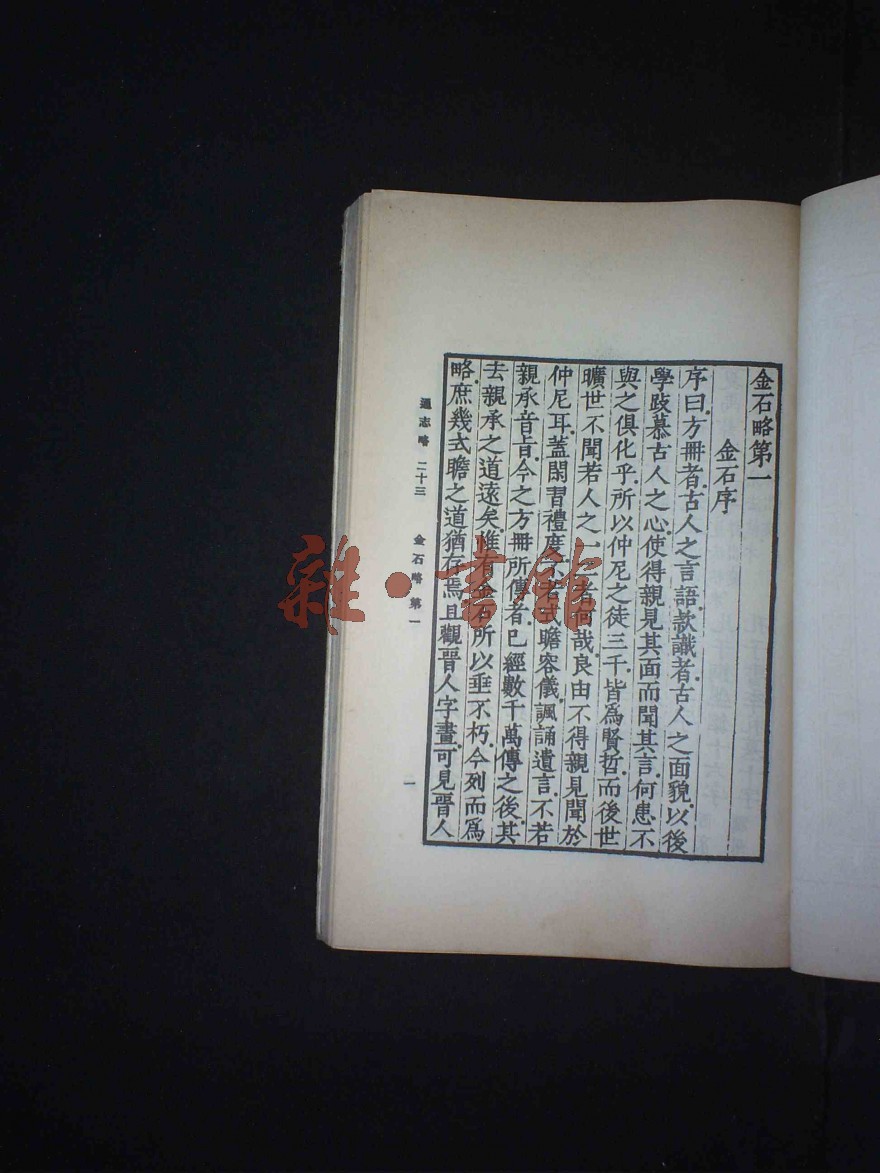 金石略第一
金石序
序曰。方冊者。古人之言語。欵識者。古人之面貌。以後
學跂慕古人之心。使得親見其面而聞其言。何患不
與之俱化乎。所以仲尼之徒三千。皆爲賢哲。而後世
曠世不聞若人之一二者何哉。良由不得親見聞於
仲尼耳。蓋閑習禮度。不若式瞻容儀。諷誦遺言。不若
親承音旨。今之方冊所傳者。已經數千萬傳之後。其
去親承之道遠矣。惟有金石所以垂不朽。今列而爲
略。庶幾式瞻之道猶存焉。且觀晉人字畫。可見晉人
通志略 二十三 金石略第一 一
雜·書館